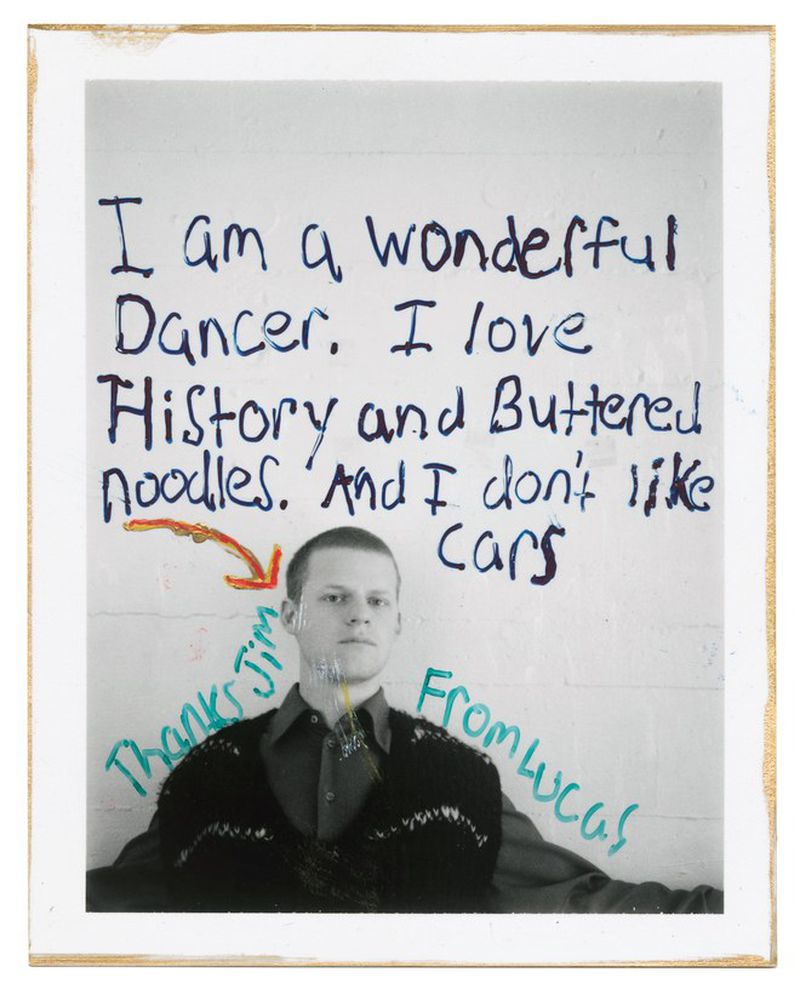 I am a wonderful
Dancer. I love
History and Buttered
noodles. And I don't like
cars
Thanks Jim
From Lucas